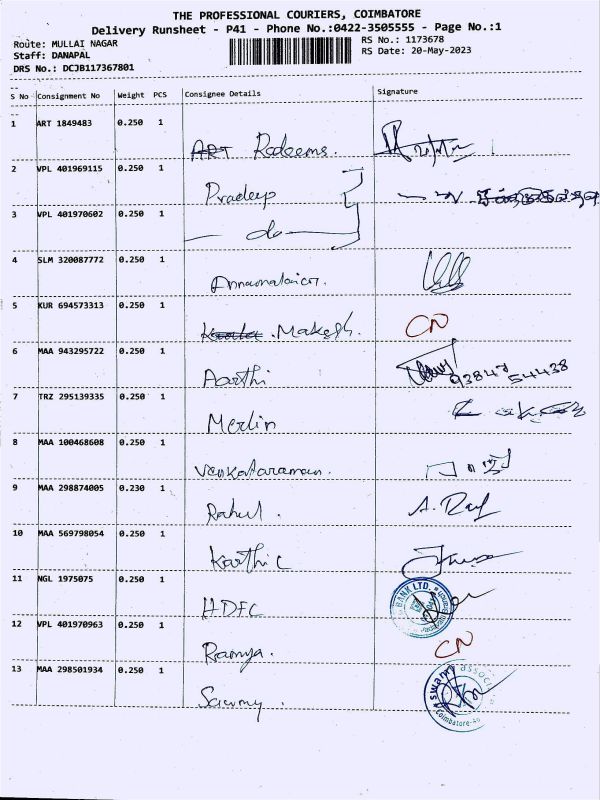 THE PROFESSIONAL COURIERS, COIMBATORE
Delivery Runsheet - P41 - Phone No.:0422-3505555 - Page No.:1
Route: MULLAI NAGAR
Staff: DANAPAL
DRS No.: DCJB117367801
RS No.: 1173678
RS Date: 20-May-2023
S No Consignment No Weight PCS Consignee Details Signature
1 ART 1849483 0.250 1
ART Redeems.
2 VPL 401969115 0.250 1
Pradeep
3 VPL 401970602 0.250 1
do
4 SLM 320087772 0.250 1
5 KUR 694573313 0.250 1
Makesh. CN
6 MAA 943295722 0.250 1
Aarthi 93847 54438
7 TRZ 295139335 0.250 1
Merlin
8 MAA 100468608 0.250 1
Venkataraman.
9 MAA 298874005 0.230 1
Rahul.
10 MAA 569798054 0.250 1
Karthi C
11 NGL 1975075 0.250 1
HDFC BANK LTD.
12 VPL 401970963 0.250 1
Ramya. CN
13 MAA 298501934 0.250 1
Sawmy. ASWAMY ASSOCI
Coimbatore